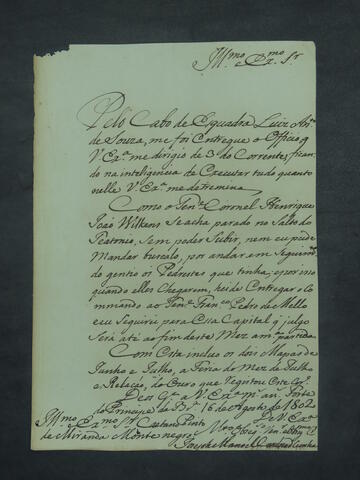 Illmo e Exmo Sr
Pelo Cabo de Esquadra Luiz Anto
de Souza, me foi entregue o Officio q
V. Exa me dirigio de 3 do Corrente, fican
do na inteligencia de Executar tudo quanto
nelle V. Exa me detremina.
Como o Tene Coronel Henrique
João Wilkens se acha parado no Salto do
Teatonio, sem poder subir, nem eu pude
Mandar buscalo, por andar em seguimto
do gentio os Pedestes que tinha; e por isso
quando elles chegarem, hei de Entregar o Co
mmando ao Tene Franco Pedro de Mello
e eu Seguirei para essa Capital q julgo
Será até ao fim deste Mez a m.a partida.
Com esta incluo os dois Mapas de
Junho e Julho, a Feria do Mez de Julho
e Relação, do Ouro que Registou este
Deos Gde a V. Exa ms ans Forte
do Principe da Bra 16 de Agosto de 1802
De V. Exa
Illmo e Exmo Sr Caetano Pinto
de Miranda Montenegro
Jozé Manoel Cunha